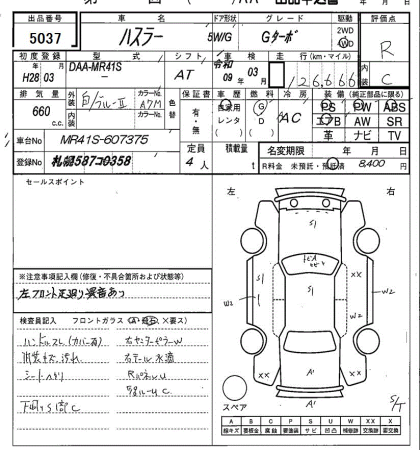 出品番号 車名 ドア形状 グレード 駆動 評価点
5037 ハスラー 5W/G Gターボ 2WD 4WD R
初度登録 型式 シフト 車検 走行(km・マイル) 内装
H28 03 DAA-MR41S AT 令和 09年 03月 126,666 C
排気量 外装 カラーNo. 色替 保証書 車歴 燃料 冷房 装備(純正部品に限る)
660 c.c. A7M 有・無 自家用 レンタ G D AC PS PW ABS
内装 カラーNo. エアB AW SR
革 ナビ TV
車台No MR41S-607375 定員 積載量 名変期限 年 月 日
登録No 札幌587そ0358 4人 t R料金 未預託・預託済 8,400円
セールスポイント 左 右
S1
S1 S1 XX
W2 W2
XX XX
A1
A1
スペア S/T
※注意事項記入欄(修復・不具合箇所および状態等)
左フロント足廻り異音あり
検査員記入 フロントガラス
ハンドルスレ(カバー有) 右センターピラーW
内装キズ、汚れ 右テール水滴
シートヘタリ RパネルU
下廻りS箇C
A B C P S U W XX X
線キズ 要板金 腐蝕 要塗装 サビ 凹凸 補修跡 交換跡 要交換